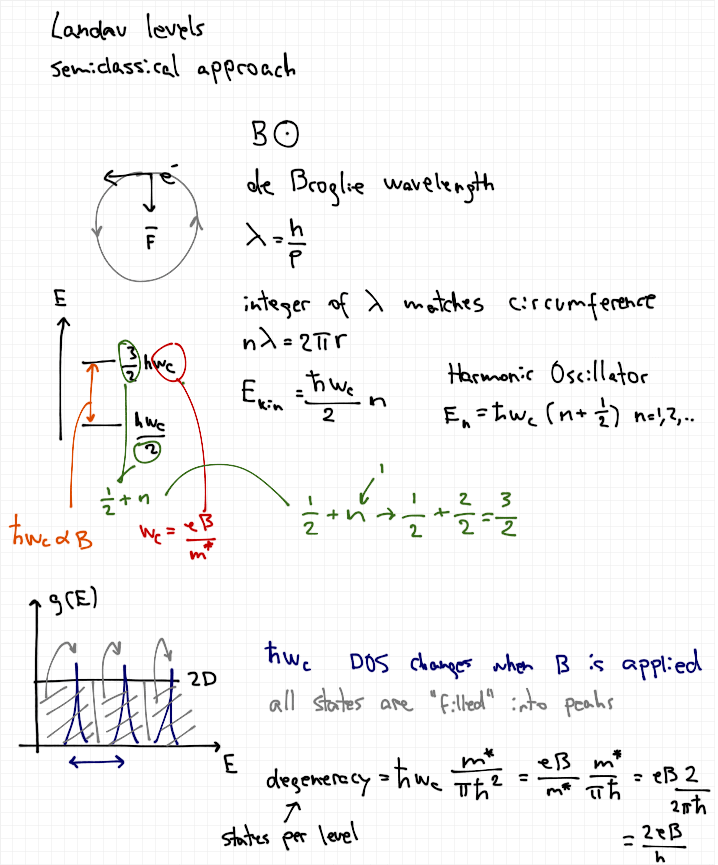 Landau levels
semiclassical approach
B ⊙
e⁻
F̄
de Broglie wavelength
λ = h/p
integer of λ matches circumference
nλ = 2πr
E_kin = ħw_c/2 n
Harmonic Oscillator
E_n = ħw_c (n + 1/2) n=1,2,..
E
3/2 ħw_c
ħw_c/2
1/2 + n
ħw_c ∝ B
w_c = eB/m*
1
1/2 + n → 1/2 + 2/2 = 3/2
g(E)
2D
E
ħw_c DOS changes when B is applied
all states are "filled" into peaks
degeneracy = ħw_c m*/πħ² = eB/m* m*/πħ = eB 2/2πħ
= 2eB/h
states per level